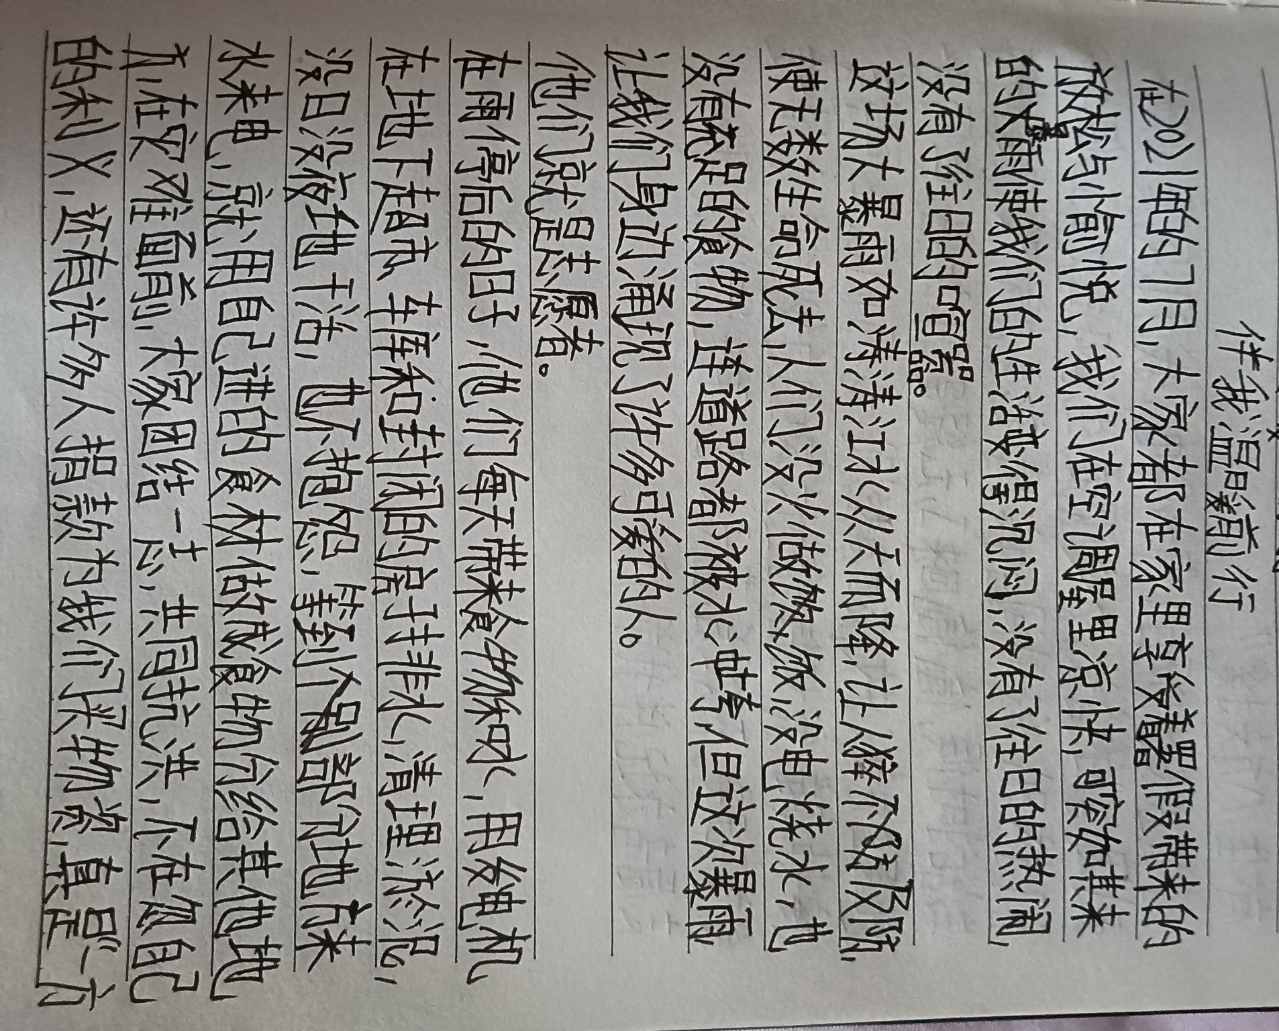 伴我温暖前行
在2021年的7月,大家都在家里享受着暑假带来的
放松与愉悦,我们在空调屋里凉快,可突如其来
的大暴雨使我们的生活变得沉闷,没有了往日的热闹,
没有了往日的喧嚣。
这场大暴雨如滚滚江水从天而降,让人猝不及防,
使无数生命死去,人们没火做熟饭,没电烧水,也
没有充足的食物,连道路都被水冲垮,但这次暴雨
让我们身边涌现了许多可爱的人。
他们就是志愿者。
在雨停后的日子,他们每天带来食物和水,用发电机
在地下超市、车库和封闭的房排水,清理淤泥,
没日没夜地干活,也不抱怨,等到个别部分地方来
水来电,就用自己进的食材做成食物分给其他地
方,在灾难面前,大家团结一志,共同抗洪,不在乎自己
的利义,还有许多人捐款为我们买物资,真是“一方